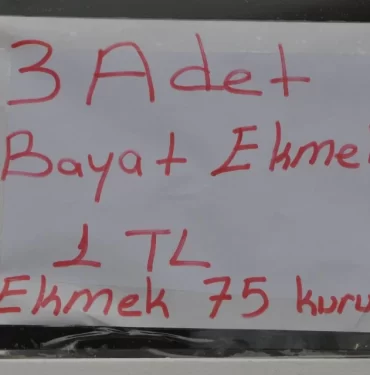 3 Adet
Bayat Ekme
1 TL
Ekmek 75 kuru